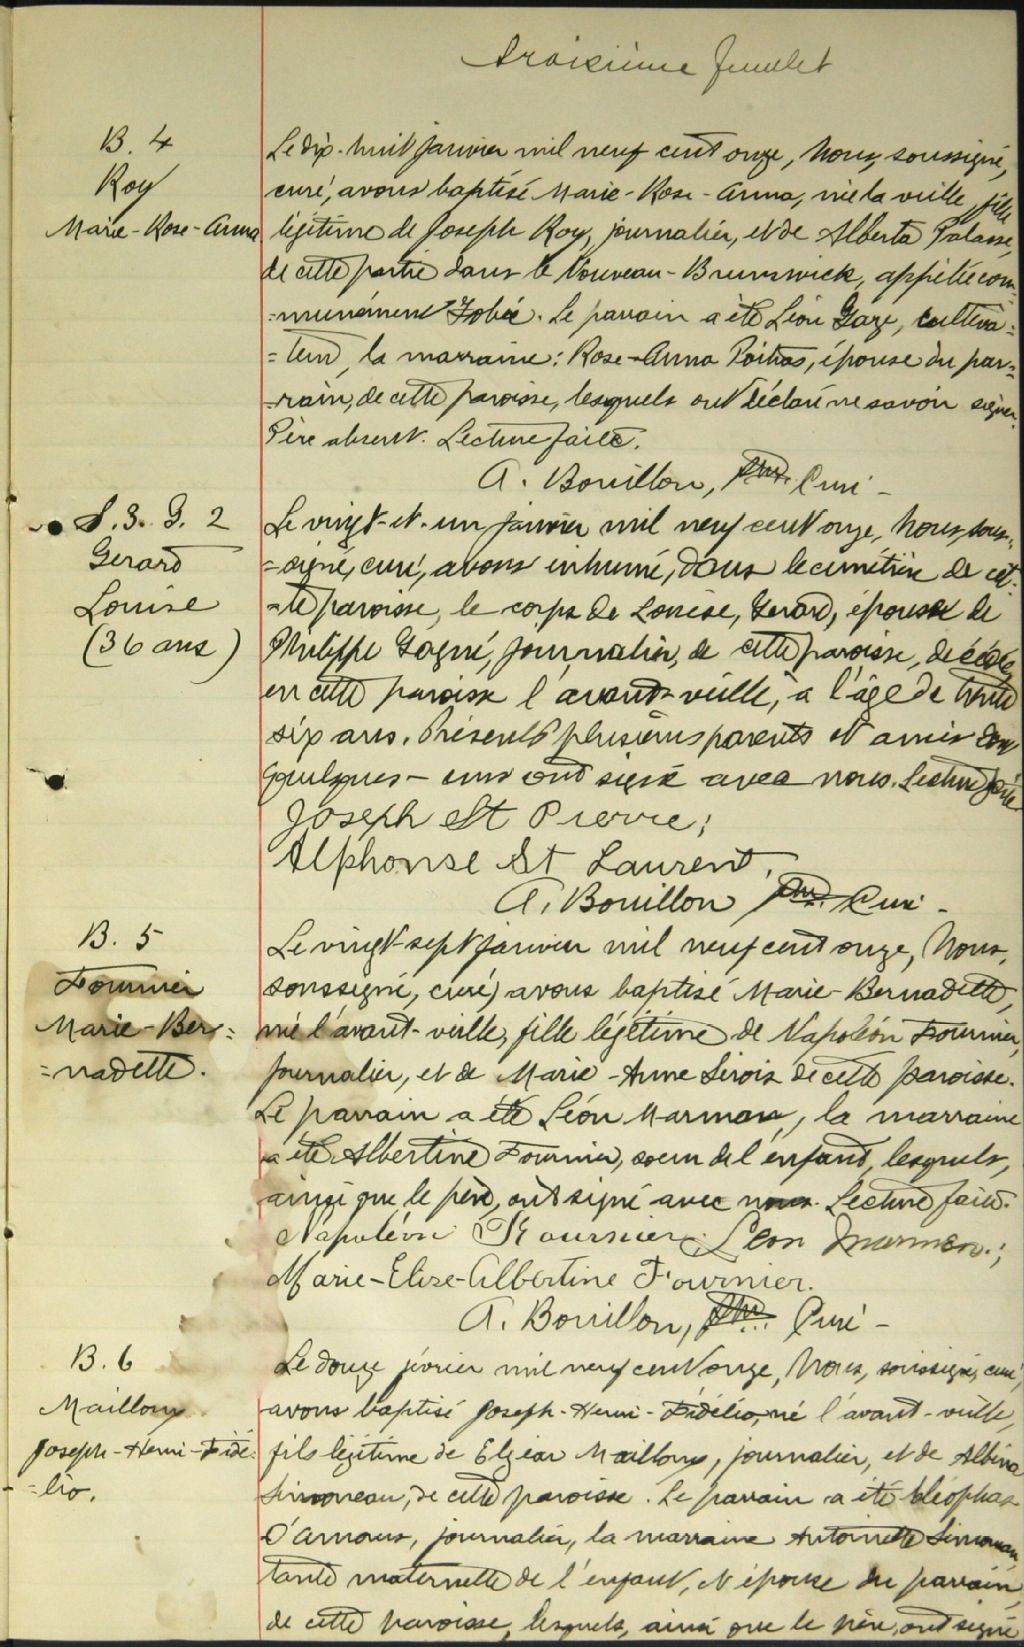 troisième feuillet
B. 4
Roy
Marie-Rose-Anna
Le dix-huit janvier mil neuf cent onze, Nous, soussigné,
curé, avons baptisé Marie-Rose-Anna, née la veille, fille
légitime de Joseph Roy, journalier, et de Alberta
de cette partie dans le Nouveau-Brunswick, appelée com-
=munément. Le parrain a été Léon, cultiva=
=teur, la marraine: Rose-Anna Poitras, épouse du par=
=rain, de cette paroisse, lesquels ont déclaré ne savoir signer.
Père absent. Lecture faite.
A. Bouillon, Ptre. Curé-
S. 3. G. 2
Gerard
Louise
(36 ans)
Le vingt-et-un janvier mil neuf cent onze, Nous, sous=
=signé, curé, avons inhumé, dans le cimetière de cet=
=te paroisse, le corps de Louise, Gerard, épouse de
Philippe Gagné, journalier, de cette paroisse, décédée
en cette paroisse l'avant-veille, à l'âge de trente
six ans. Présents plusieurs parents et amis dont
quelques-uns ont signé avec nous. Lecture faite
Joseph St Pierre;
Alphonse St Laurent,
A. Bouillon Ptre. Curé-
B. 5
Fournier
Marie-Ber=
=nadette.
Le vingt-sept janvier mil neuf cent onze, Nous,
soussigné, curé, avons baptisé Marie-Bernadette,
née l'avant-veille, fille légitime de Napoléon Fournier,
journalier, et de Marie-Anne Sirois de cette paroisse.
Le parrain a été Léon Marmen, la marraine
a été Albertine Fournier, soeur de l'enfant, lesquels,
ainsi que le père, ont signé avec nous. Lecture faite.
Napoléon Fournier; Leon Marmen.;
Marie-Elise-Albertine Fournier.
A. Bouillon, Ptre. Curé-
B. 6
Mailloux
Joseph-Henri-Fidé=
=lio.
Le douze février mil neuf cent onze, Nous, soussigné, curé,
avons baptisé Joseph-Henri-Fidélio, né l'avant-veille,
fils légitime de Elzéar Mailloux, journalier, et de Albina
Simoneau, de cette paroisse. Le parrain a été Cléophas
D'Amours, journalier, la marraine Antoinette Simoneau,
tante maternelle de l'enfant, et épouse du parrain,
de cette paroisse, lesquels, ainsi que le père, ont signé